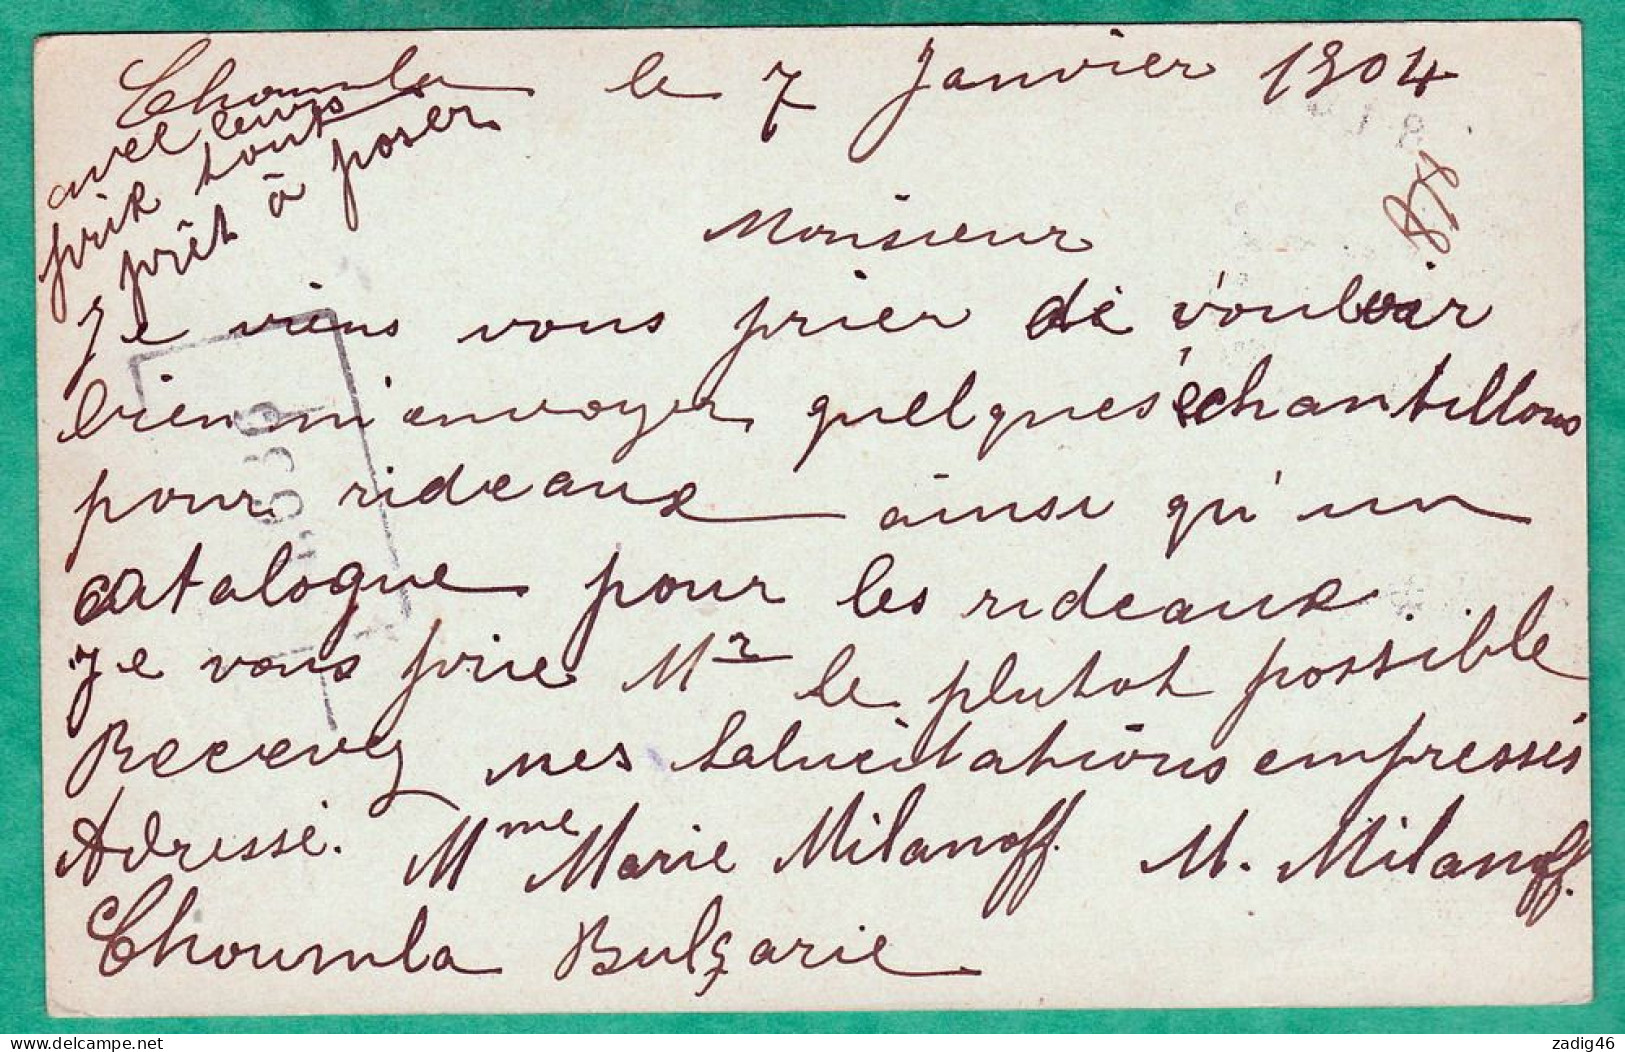 Choumla le 7 Janvier 1904
avec leurs
prix tout
prêt à poser
Monsieur
Je viens vous prier de vouloir
bien m'envoyer quelques échantillons
pour rideaux ainsi qu'un
catalogue pour les rideaux.
Je vous prie Mr le plutot possible
Recevez mes salucitations empressés
Adresse. Mme Marie Milanoff. M. Milanoff.
Choumla Bulgarie
delcampe.net
zadig46